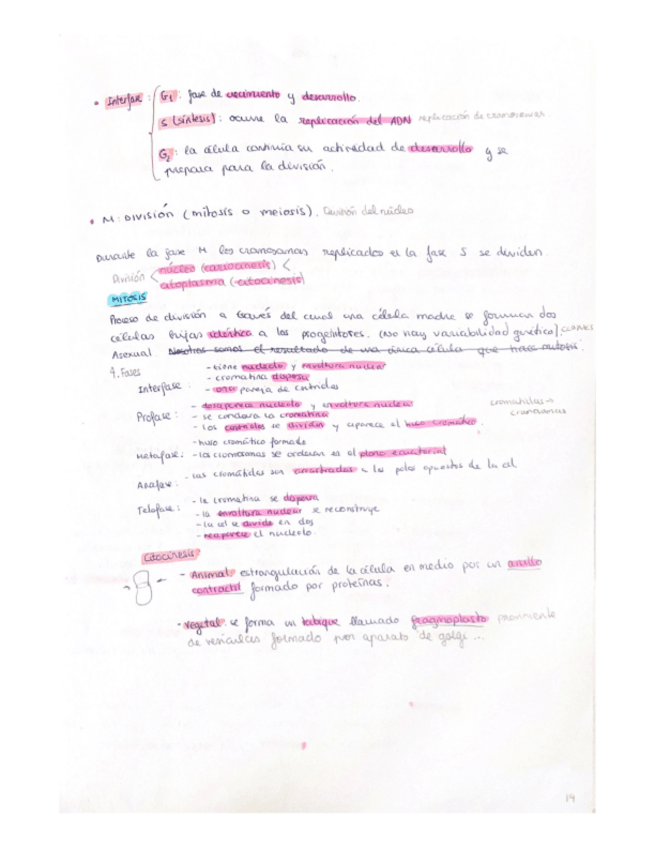 • Interfase: G1: fase de crecimiento y desarrollo.
S (síntesis): ocurre la replicación del ADN replicación de cromosomas.
G2: la célula continúa su actividad de desarrollo y se
prepara para la división.
• M: DIVISIÓN (mitosis o meiosis). División del núcleo
Durante la fase M los cromosomas replicados en la fase S se dividen.
División < núcleo (cariocinesis) <
citoplasma (citocinesis)
MITOSIS
Proceso de división a través del cual una célula madre se forman dos
células hijas idéntica a los progenitores. (No hay variabilidad genética). CLONES
Asexual. Nosotros somos el resultado de una única célula que hace mitosis.
4. Fases
Interfase: - tiene nucleolo y envoltura nuclear
- cromatina dispersa
- una pareja de centriolos
Profase: - desaparece nucleolo y envoltura nuclear
- se condensa la cromatina
- los centriolos se dividen y aparece el huso cromático.
cromatidas →
cromosomas
- huso cromático formado
Metafase: - los cromosomas se ordenan en el plano ecuatorial
Anafase: - las cromátidas son arrastradas a los polos opuestos de la cel
Telofase: - la cromatina se dispersa
- la envoltura nuclear se reconstruye
- la cel se divide en dos
- reaparece el nucleolo.
Citocinesis
- Animal: estrangulación de la célula en medio por un anillo
contractil formado por proteínas.
- Vegetal: se forma un tabique llamado fragmoplasto proviniente
de vesículas formado por aparato de golgi...
19